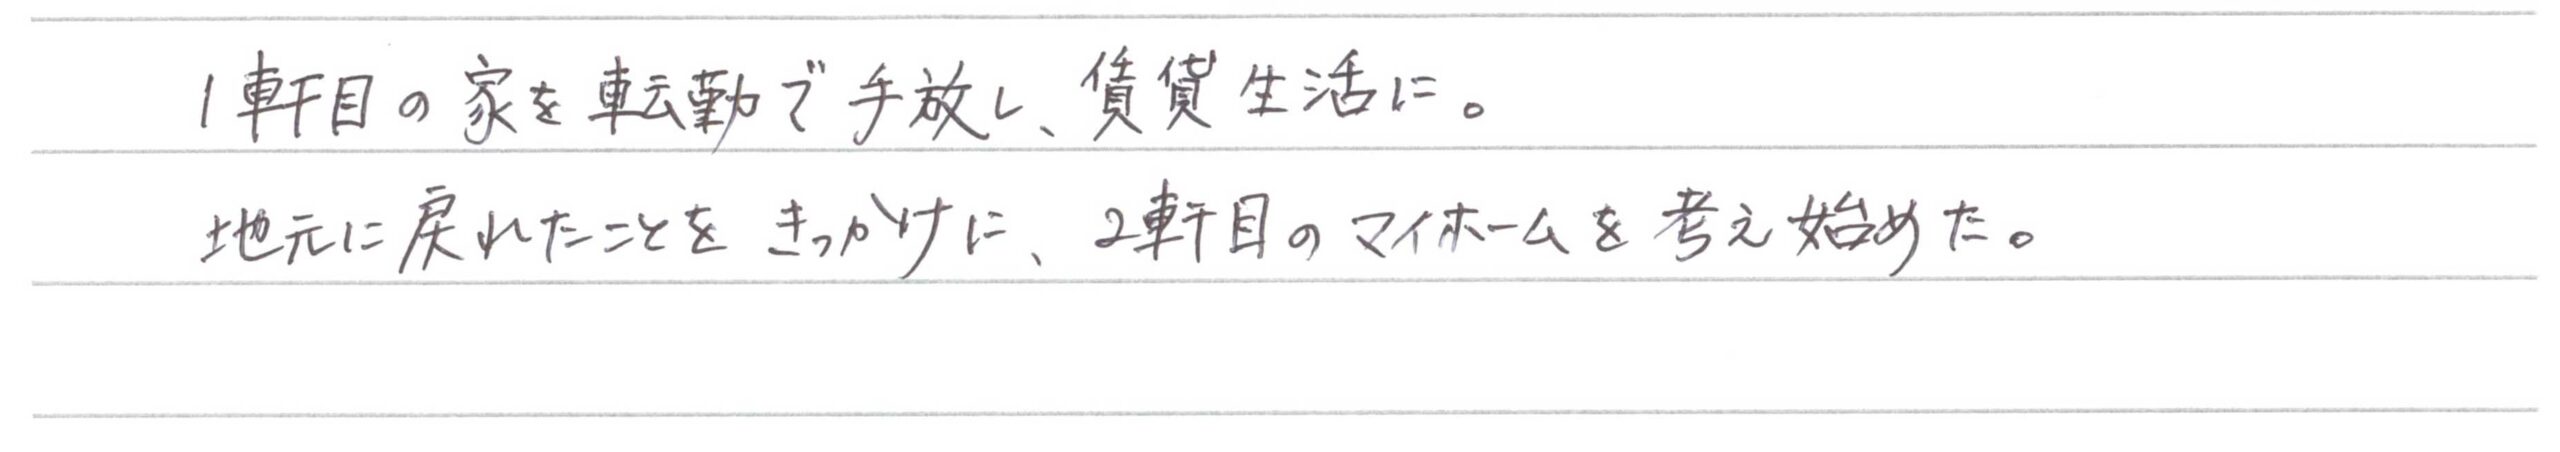 1軒目の家を転勤で手放し、賃貸生活に。
地元に戻れたことをきっかけに、2軒目のマイホームを考え始めた。